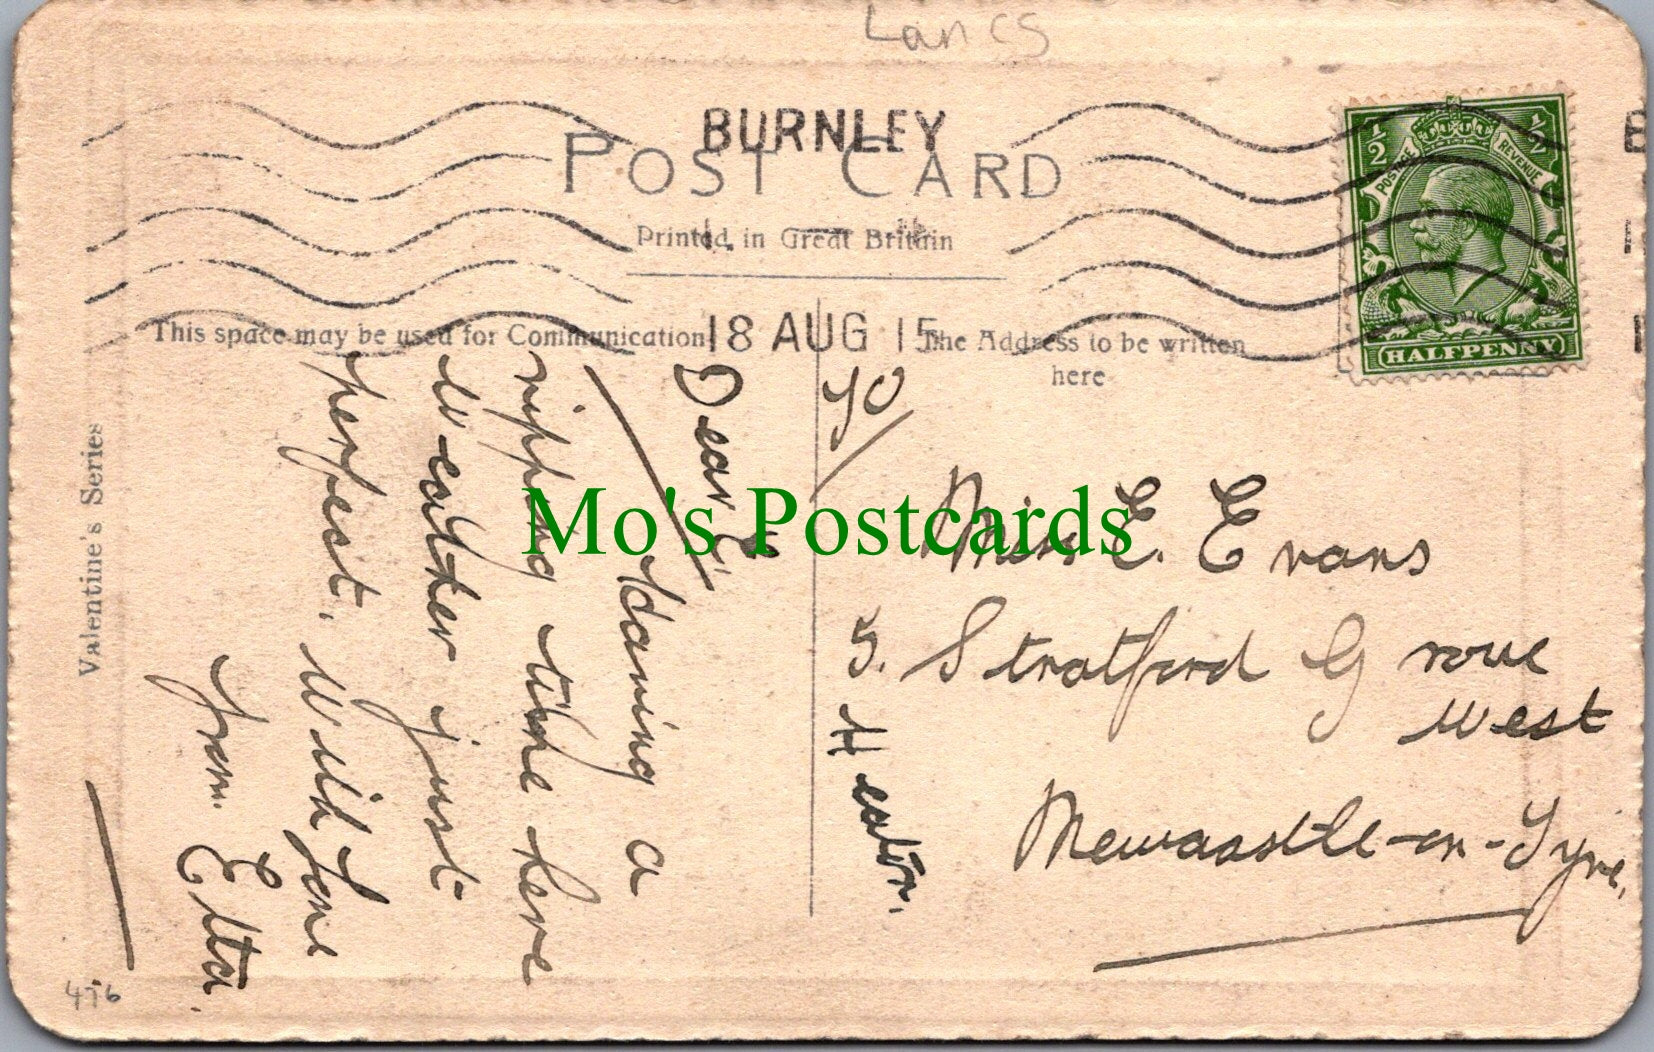 Lancs
BURNLEY
POST CARD
Printed in Great Britain
18 AUG 15
½ ½
POSTAGE REVENUE
HALFPENNY
This space may be used for Communication
The Address to be written
here
Valentine's Series
Dear E
Having a
ripping time here
Weather just
perfect. With Love
from. Etta.
Miss E. Evans
5. Stratford Grove
West
Heaton.
Newcastle-on-Tyne.
476
Mo's Postcards